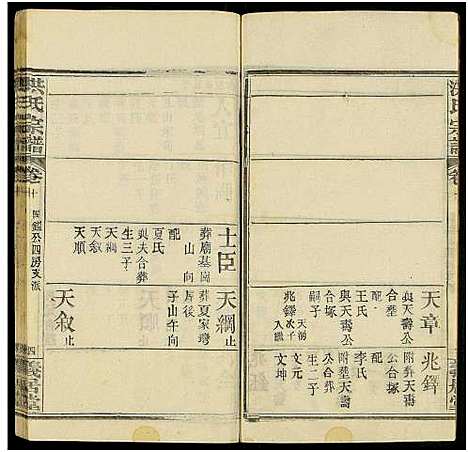 洪氏宗譜
卷
天章
與天壽公
合塋
配
王氏
與天壽公
合塚
嗣子
兆鐸
兆鐸
附葬天壽
公合塚
配
李氏
附塋天壽
公合葬
生二子
文元
文坤
士臣
葬廟基崗
山向
配
夏氏
與夫合葬
生三子
天綱
天敘
天順
天綱
止
葬夏家灣
屋後
子山午向
天敘
止
洪氏宗譜
卷
十
四房支派
四
義居堂